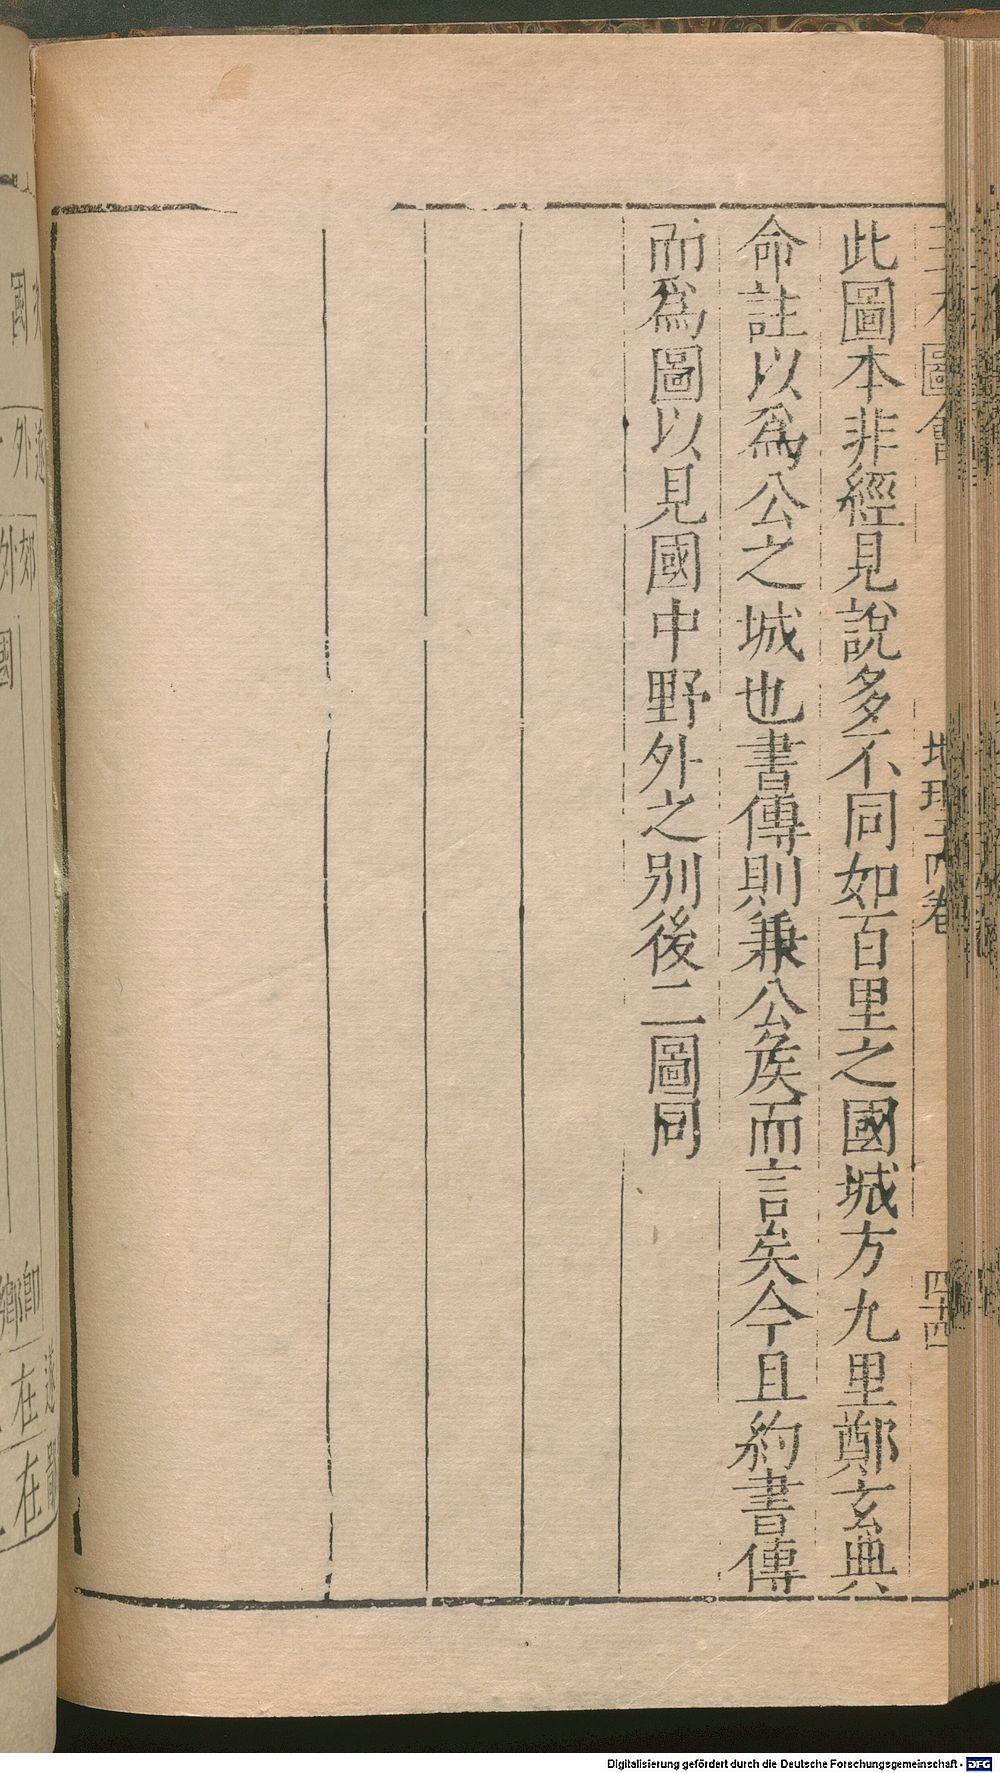 此圖本非經見說多不同如百里之國城方九里鄭玄典
命註以爲公之城也書傳則兼公侯而言矣今且約書傳
而爲圖以見國中野外之別後二圖同
圖會
地理
卷
四十四
國
外
郊
外
國
鄉
在
在
Digitalisierung gefördert durch die Deutsche Forschungsgemeinschaft - DFG